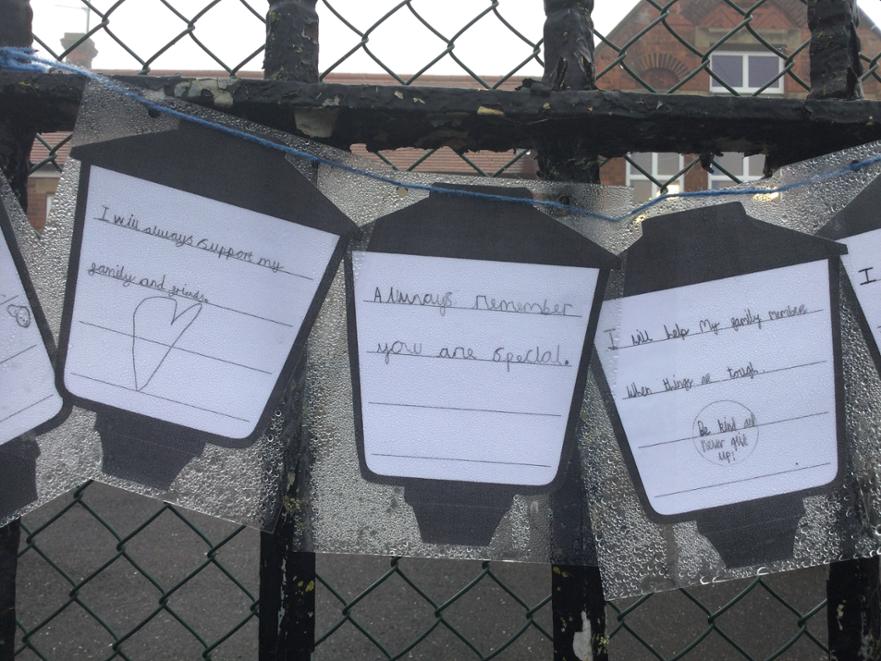 I will always support my
family and friends
Always remember
you are special.
I will help my family members
When things are tough.
Be kind and
never give
up!
I